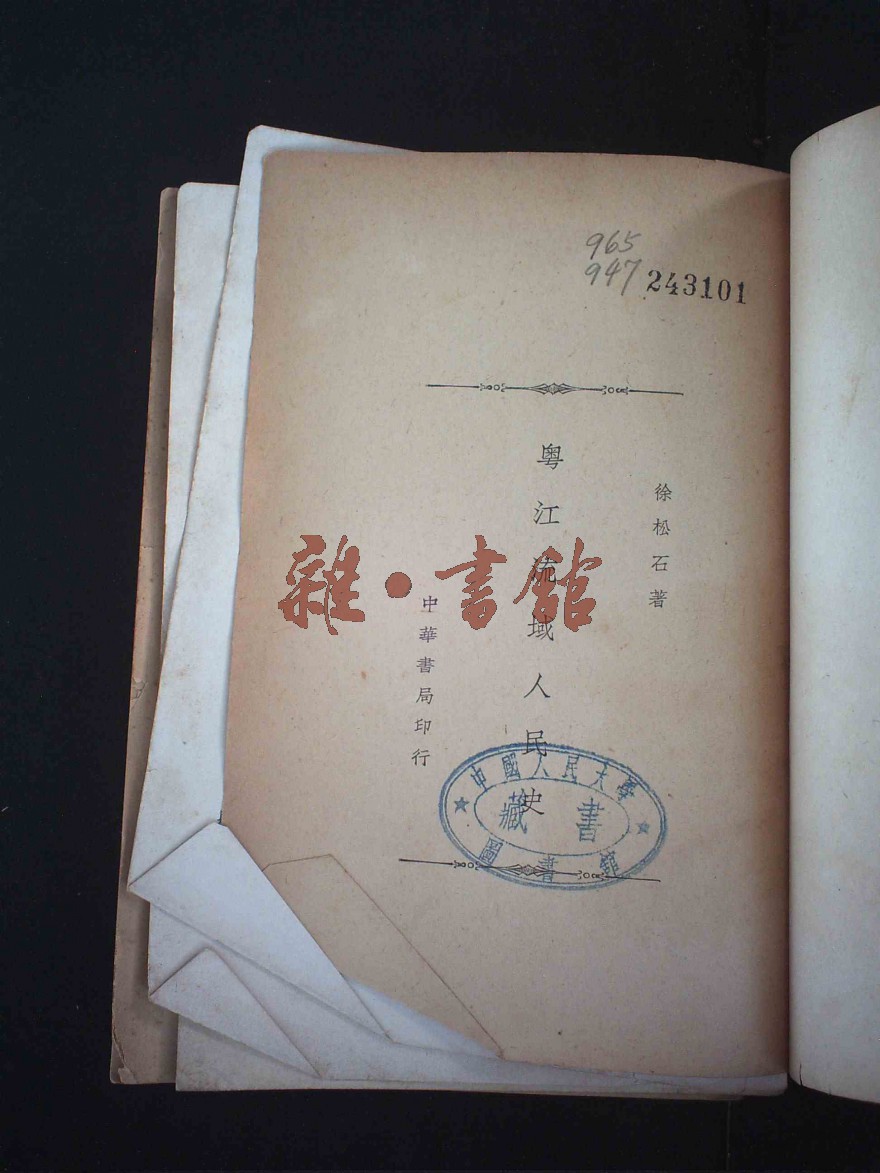 965
947
243101
徐松石著
粵江流域人民史
中華書局印行
雜·書館
中國人民大學
藏書
圖書館